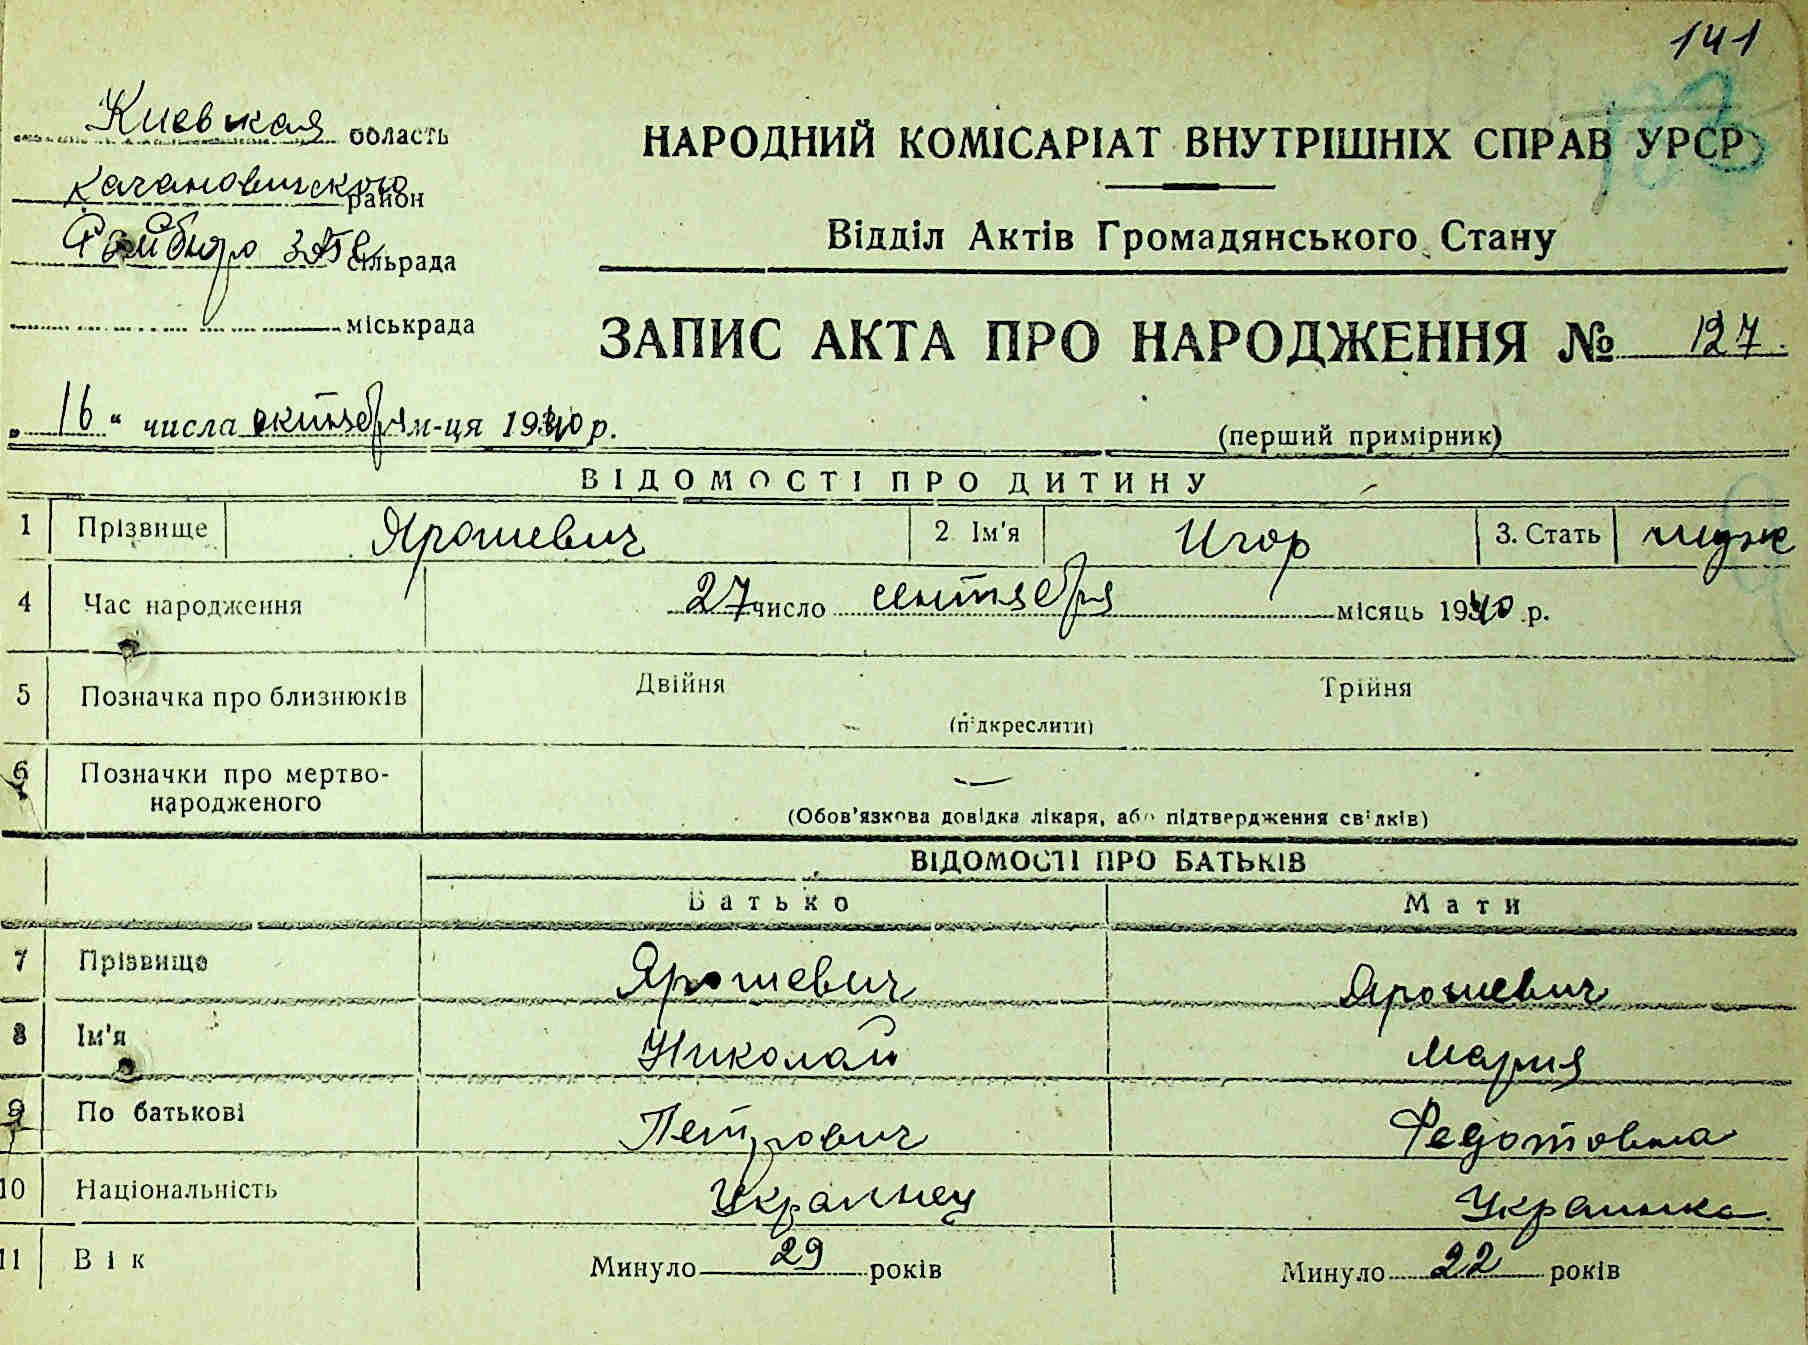 141
Киевская область
НАРОДНИЙ КОМІСАРІАТ ВНУТРІШНІХ СПРАВ УРСР
Качановичского район
Відділ Актів Громадянського Стану
Райбюро ЗАГС сільрада
міськрада
ЗАПИС АКТА ПРО НАРОДЖЕННЯ № 127.
„16“ числа октября м-ця 1940 р.
(перший примірник)
ВІДОМОСТІ ПРО ДИТИНУ
1 Прізвище Ярошевич 2 Ім'я Игор 3. Стать муж
4 Час народження 27 число сентября місяць 1940 р.
5 Позначка про близнюків Двійня Трійня
(підкреслити)
6 Позначки про мертво-
народженого —
(Обов'язкова довідка лікаря, або підтвердження свідків)
ВІДОМОСТІ ПРО БАТЬКІВ
Батько Мати
7 Прізвище Ярошевич Ярошевич
8 Ім'я Николай Мария
9 По батькові Петрович Федотовна
10 Національність Украинец Украинка
11 Вік Минуло 29 років Минуло 22 років